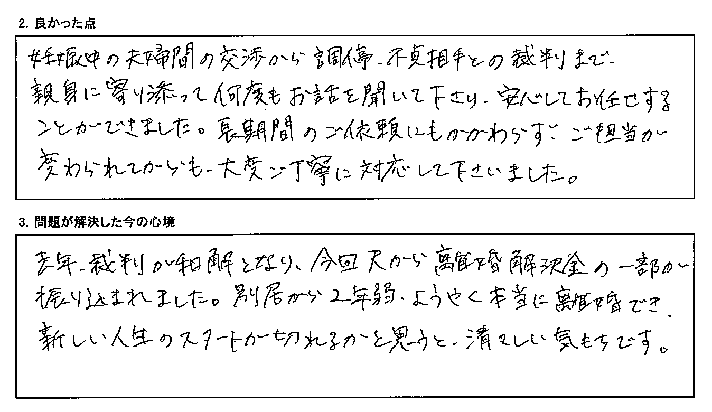 2. 良かった点
妊娠中の夫婦間の交渉から調停、不貞相手との裁判まで、
親身に寄り添って何度もお話を聞いて下さり、安心してお任せする
ことができました。長期間のご依頼にもかかわらず、ご担当が
変わられてからも、大変ご丁寧に対応して下さいました。
3. 問題が解決した今の心境
去年、裁判が和解となり、今回夫から離婚解決金の一部が
振り込まれました。別居から2年弱、ようやく本当に離婚でき、
新しい人生のスタートが切れるかと思うと、清々しい気もちです。